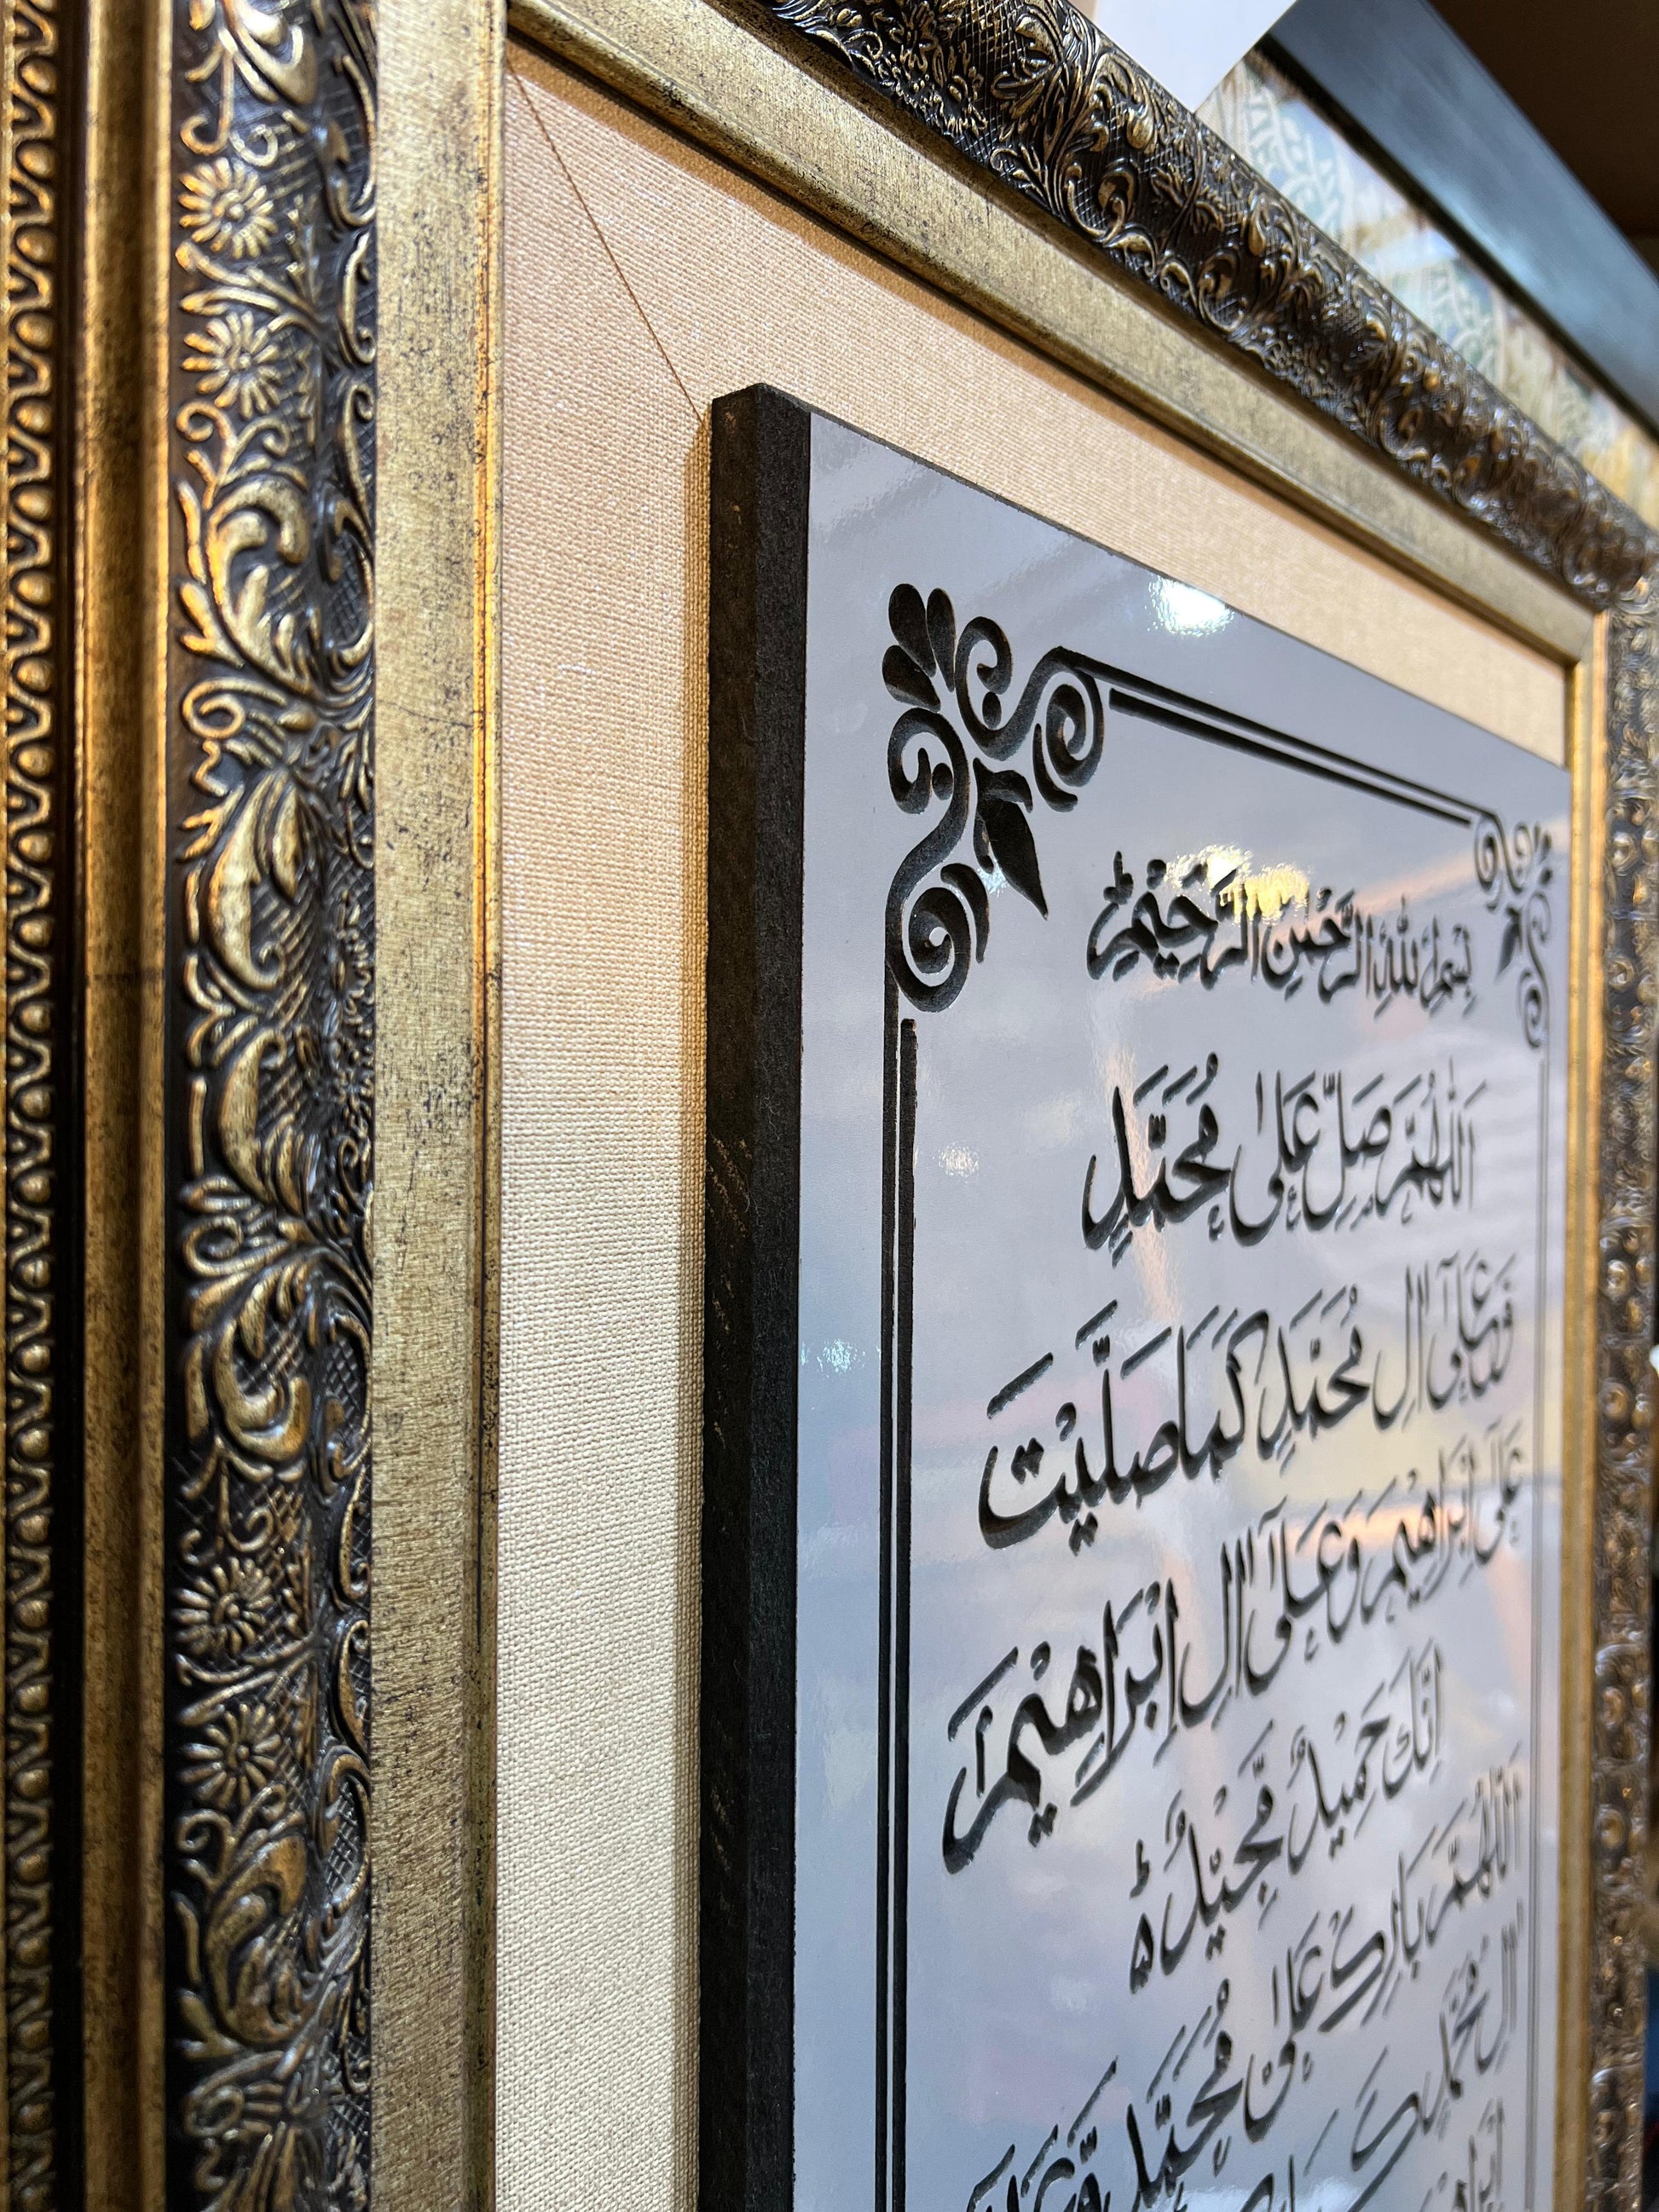 بِسْمِ اللهِ الرَّحْمٰنِ الرَّحِيْمِ
اَللّٰهُمَّ صَلِّ عَلٰى مُحَمَّدٍ
وَّعَلٰٓى اٰلِ مُحَمَّدٍ كَمَا صَلَّيْتَ
عَلٰٓى اِبْرَاهِيْمَ وَعَلٰٓى اٰلِ اِبْرَاهِيْمَ
اِنَّكَ حَمِيْدٌ مَّجِيْدٌ
اَللّٰهُمَّ بَارِكْ عَلٰى مُحَمَّدٍ وَّعَلٰٓى
اٰلِ مُحَمَّدٍ